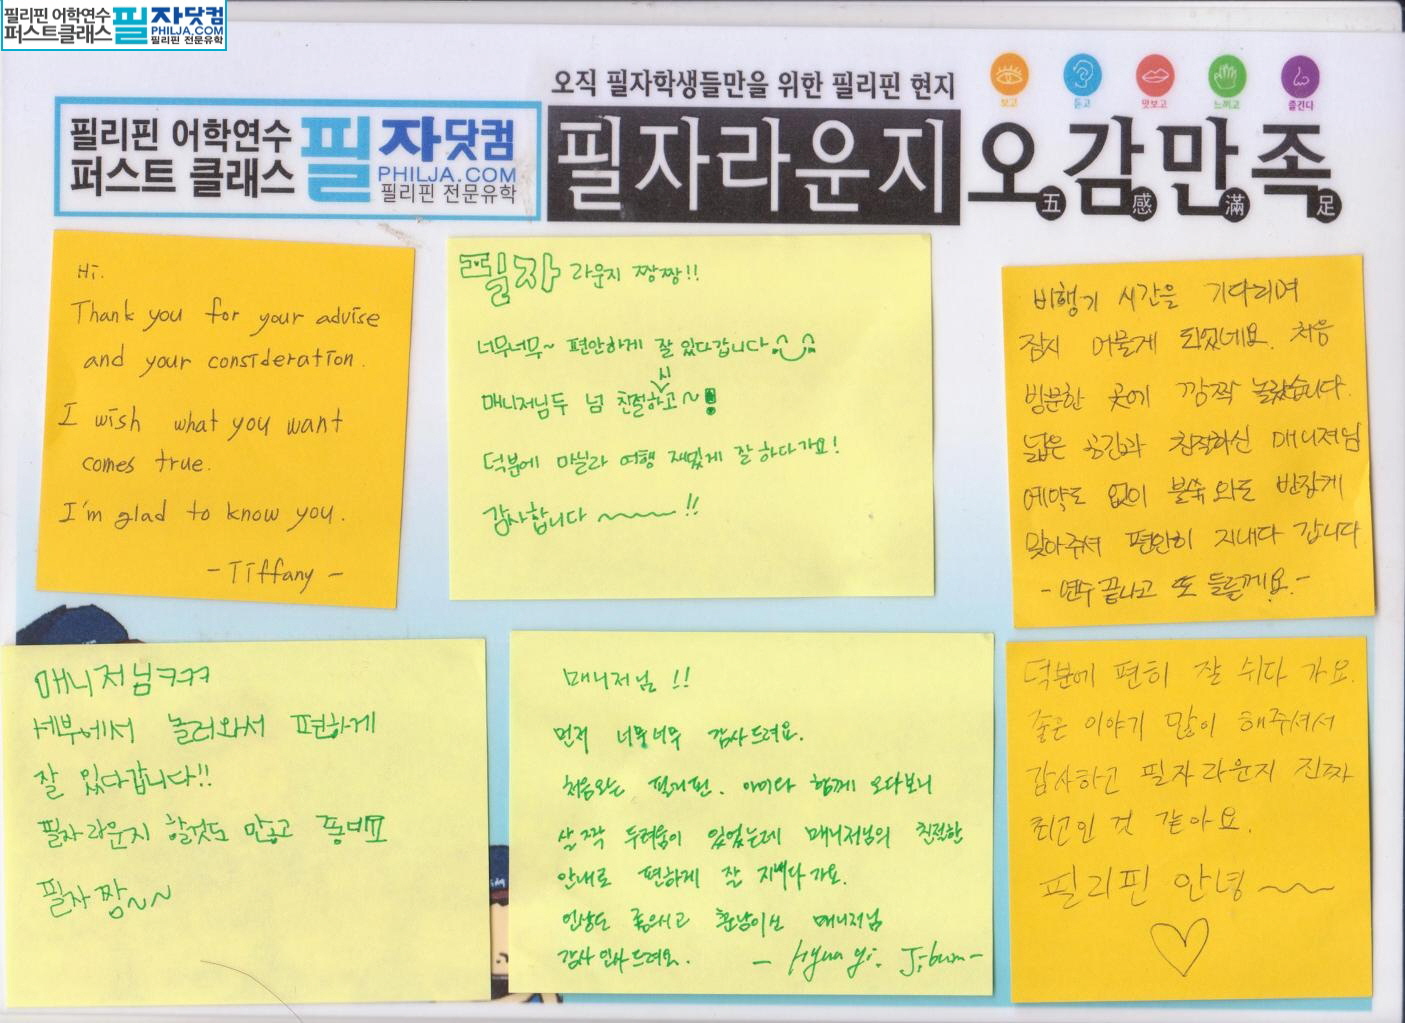 필리핀 어학연수
퍼스트클래스
필자닷컴
PHILJA.COM
필리핀 전문유학
오직 필자학생들만을 위한 필리핀 현지
보고
듣고
맛보고
느끼고
즐긴다
필리핀 어학연수
퍼스트 클래스
필자닷컴
PHILJA.COM
필리핀 전문유학
필자라운지
오감만족
五感滿足
Hi.
Thank you for your advise
and your consideration.
I wish what you want
comes true.
I'm glad to know you.
- Tiffany -
필자 라운지 짱짱!!
너무너무~ 편안하게 잘 있다갑니다.
매니저님두 넘 친절하시고~!
덕분에 마닐라 여행 재밌게 잘 하다가요!
감사합니다 ~~~~!!
비행기 시간을 기다리며
잠시 머물게 되었네요. 처음
방문한 곳에 깜짝 놀랐습니다.
넓은 공간과 친절하신 매니저님
예약도 없이 불쑥 와도 반갑게
맞아주셔 편안히 지내다 갑니다
- 연수 끝나고 또 들를께요. -
매니저님ㅋㅋㅋ
세부에서 놀러와서 편하게
잘 있다갑니다!!
필자라운지 할것도 많고
필자 짱~~
매니저님 !!
먼저 너무너무 감사드려요.
처음오는 필리핀. 아이와 함께 오다보니
살짝 두려움이 있었는데 매니저님의 친절한
안내로 편하게 잘 지내다 가요.
인상도 좋으시고 훈남이신 매니저님
감사 인사 드려요. - Hyun yi. Ji-bum -
덕분에 편히 잘 쉬다 가요.
좋은 이야기 많이 해주셔서
감사하고 필자라운지 진짜
최고인 것 같아요.
필리핀 안녕 ~~